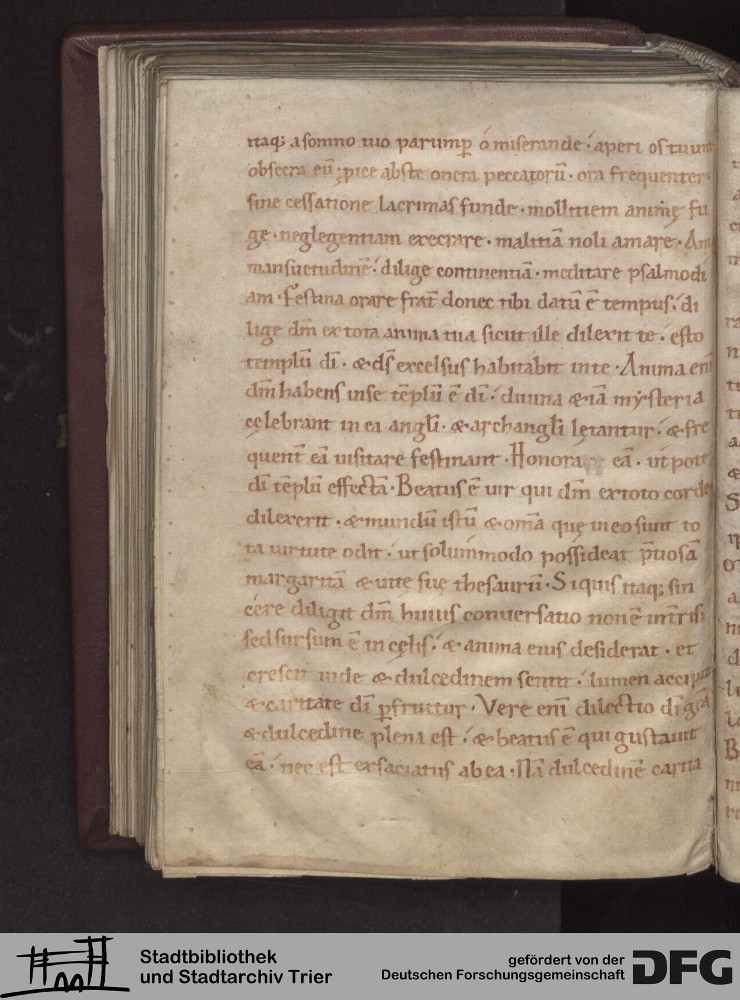 itaq; a somno tuo parumꝑ o miserande · aperi os tuum
obsecra eū · ꝓice abs te onera peccatorū · ora frequenter ·
sine cessatione lacrimas funde · mollitiem animę fu
ge · neglegentiam execrare · malitiā noli amare · Am
mansuetudinē · dilige continentiā · meditare psalmodi
am · Festina orare frat̄ donec tibi datū ē tempus · di
lige dm̄ ex tota anima tua sicut ille dilexit te · esto
templū dī · & ds̄ excelsus habitabit in te · Anima enī
dm̄ habens in se tēplū ē dī · diuina & iā mysteria
cęlebrant in ea angl̄i · & archangl̄i lętantur · & fre
quent̄ eā uisitare festinant · Honora eā · ut pote
dī tēplū effectā · Beatus ē uir qui dm̄ ex toto corde
dilexerit · & mundū istū & om̄a quę in eo sunt to
ta uirtute odit · ut solummodo possideat p̄tiosā
margaritā & uitę suę thesaurū · Siquis itaq; sin
cere diligit dm̄ huius conuersatio non ē in t̄ris
sed sursum ē in cęlis · & anima eius desiderat · et
crescit inde & dulcedinem sentit · lumen accipit
& caritate dī ꝑfruitur · Vere enī dilectio dī gr̄a
& dulcedine plena est · & beatus ē qui gustauit
eā · nec est exsaciatus ab ea · Nā dulcedinē carita
Stadtbibliothek
und Stadtarchiv Trier
gefördert von der
Deutschen Forschungsgemeinschaft
DFG